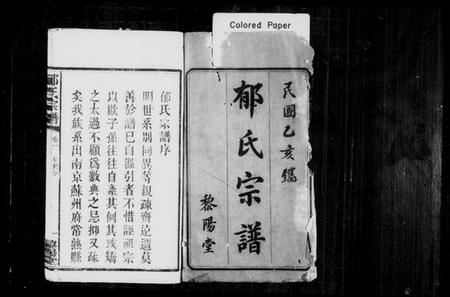 Colored Paper
民國乙亥鐫
郁氏宗譜
黎陽堂
郁氏宗譜序
明世系別同異等親疎齊遠邇莫
善於譜已自譜引者不惜誣祖宗
以欺子孫往往自彙其何其或矯
之太過不顧爲數典之忌抑又疎
矣我族系出南京蘇州府常熟縣
郁氏宗譜